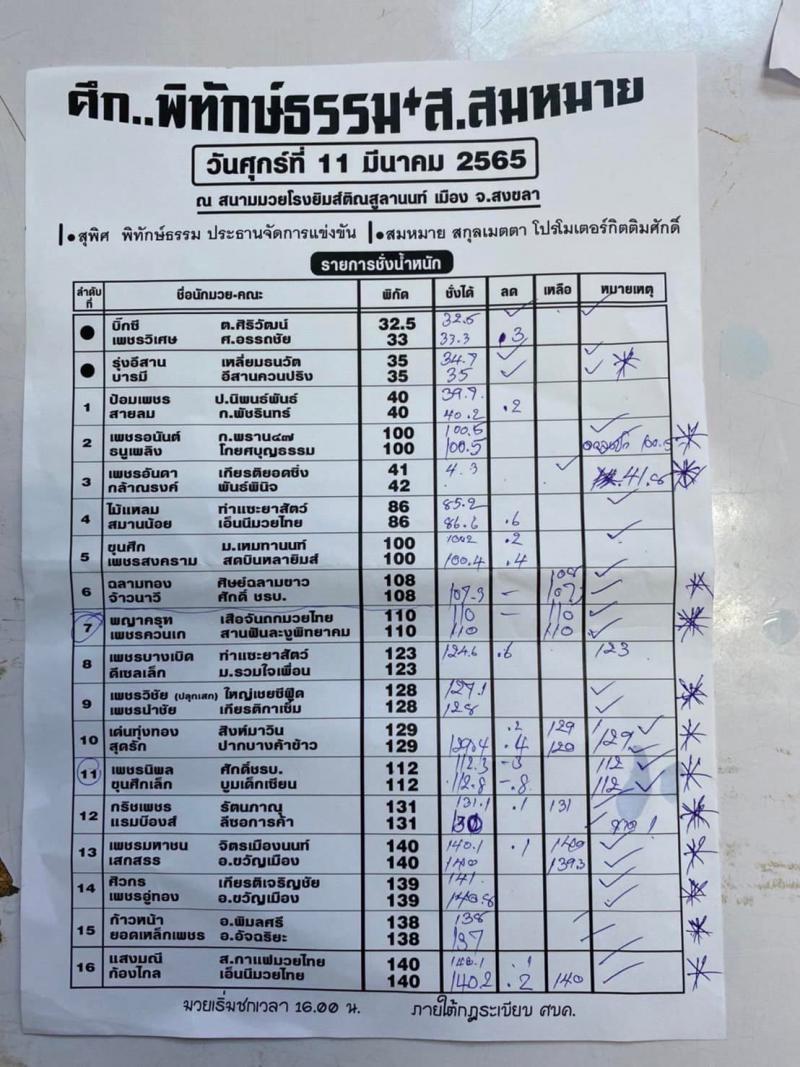 ศึก..พิทักษ์ธรรม+ส.สมหมาย
วันศุกร์ที่ 11 มีนาคม 2565
ณ สนามมวยโรงยิมส์ติณสูลานนท์ เมือง จ.สงขลา
•สุพิศ พิทักษ์ธรรม ประธานจัดการแข่งขัน •สมหมาย สกุลเมตตา โปรโมเตอร์กิตติมศักดิ์
รายการชั่งน้ำหนัก
ลำดับที่ ชื่อนักมวย-คณะ พิกัด ชั่งได้ ลด เหลือ หมายเหตุ
● บิ๊กซี ต.ศิริวัฒน์ 32.5 32.5
เพชรวิเศษ ศ.อรรถชัย 33 33.3 .3
● รุ่งอีสาน เหลี่ยมธนวัต 35 34.7
บารมี อีสานควนปริง 35 35
1 ป้อมเพชร ป.นิพนธ์พันธ์ 40 39.9
สายลม ก.พัชรินทร์ 40 40.2 .2
2 เพชรอนันต์ ก.พราน๔๗ 100 100.5
ธนูเพลิง โกยศบุญธรรม 100 100.5 100.5
3 เพชรอันดา เกียรติยอดซิ่ง 41 4.3
กล้าณรงค์ พันธ์พินิจ 42 41.8
4 ไม้แหลม ท่าแซะยาสัตว์ 86 85.2
สมานน้อย เอ็นนีมวยไทย 86 86.6 .6
5 ขุนศึก ม.เหมทานนท์ 100 100.2 .2
เพชรสงคราม สดบินหลายิมส์ 100 100.4 .4
6 ฉลามทอง ศิษย์ฉลามขาว 108 108
จ้าวนาวี ศักดิ์ ชรบ. 108 107.3 – 107
7 พญาครุฑ เสือจันถกมวยไทย 110 110 – 110
เพชรควนเก สานฟันละงูพิทยาคม 110 110 110
8 เพชรบางเบิด ท่าแซะยาสัตว์ 123 124.6 .6 123
ดีเซลเล็ก ม.รวมใจเพื่อน 123
9 เพชรวิชัย (ปลุกเสก) ใหญ่เชยซีฟู๊ด 128 127.1
เพชรนำชัย เกียรติกาเซ็ม 128 128
10 เด่นทุ่งทอง สิงห์มาวิน 129 .2 129
สุดรัก ปากบางค้าข้าว 129 129.4 .4 129 129
11 เพชรนิพล ศักดิ์ชรบ. 112 112.3 -3 112
ขุนศึกเล็ก บูมเด็กเซียน 112 112.8 -.8 112
12 กริชเพชร รัตนภาณุ 131 131.1 .1 131
แรมบือองส์ ลีซอการค้า 131 130
13 เพชรมหาชน จิตรเมืองนนท์ 140 140.1 .1 140
เสกสรร อ.ขวัญเมือง 140 140 139.3
14 ศิวกร เกียรติเจริญชัย 139 141.
เพชรอู่ทอง อ.ขวัญเมือง 139 140.8
15 ก้าวหน้า อ.พิมลศรี 138 138
ยอดเหล็กเพชร อ.อัจฉริยะ 138 137
16 แสงมณี ส.กาแฟมวยไทย 140 140.1 .1
ก้องไกล เอ็นนีมวยไทย 140 140.2 .2 140
มวยเริ่มชกเวลา 16.00 น. ภายใต้กฎระเบียบ ศบค.